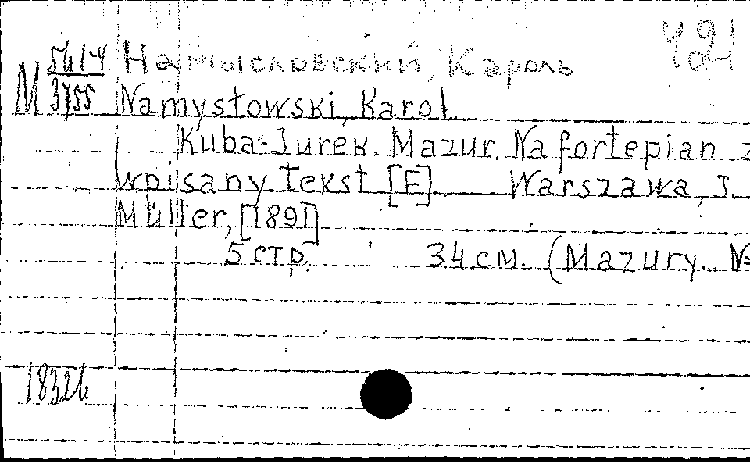 Намысловский, Кароль
М 5614/3755 Namysłowski, Karol.
Kuba-Jurek. Mazur. Na fortepian z
wpisany tekst [E]. Warszawa, J.
Müller, [1891]
5 стр. 34 см. (Mazury. №